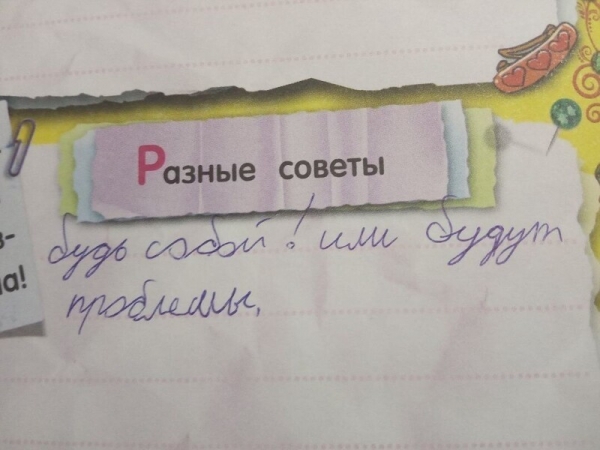 Разные советы
будь собой! или будут
проблемы.
з-
а!